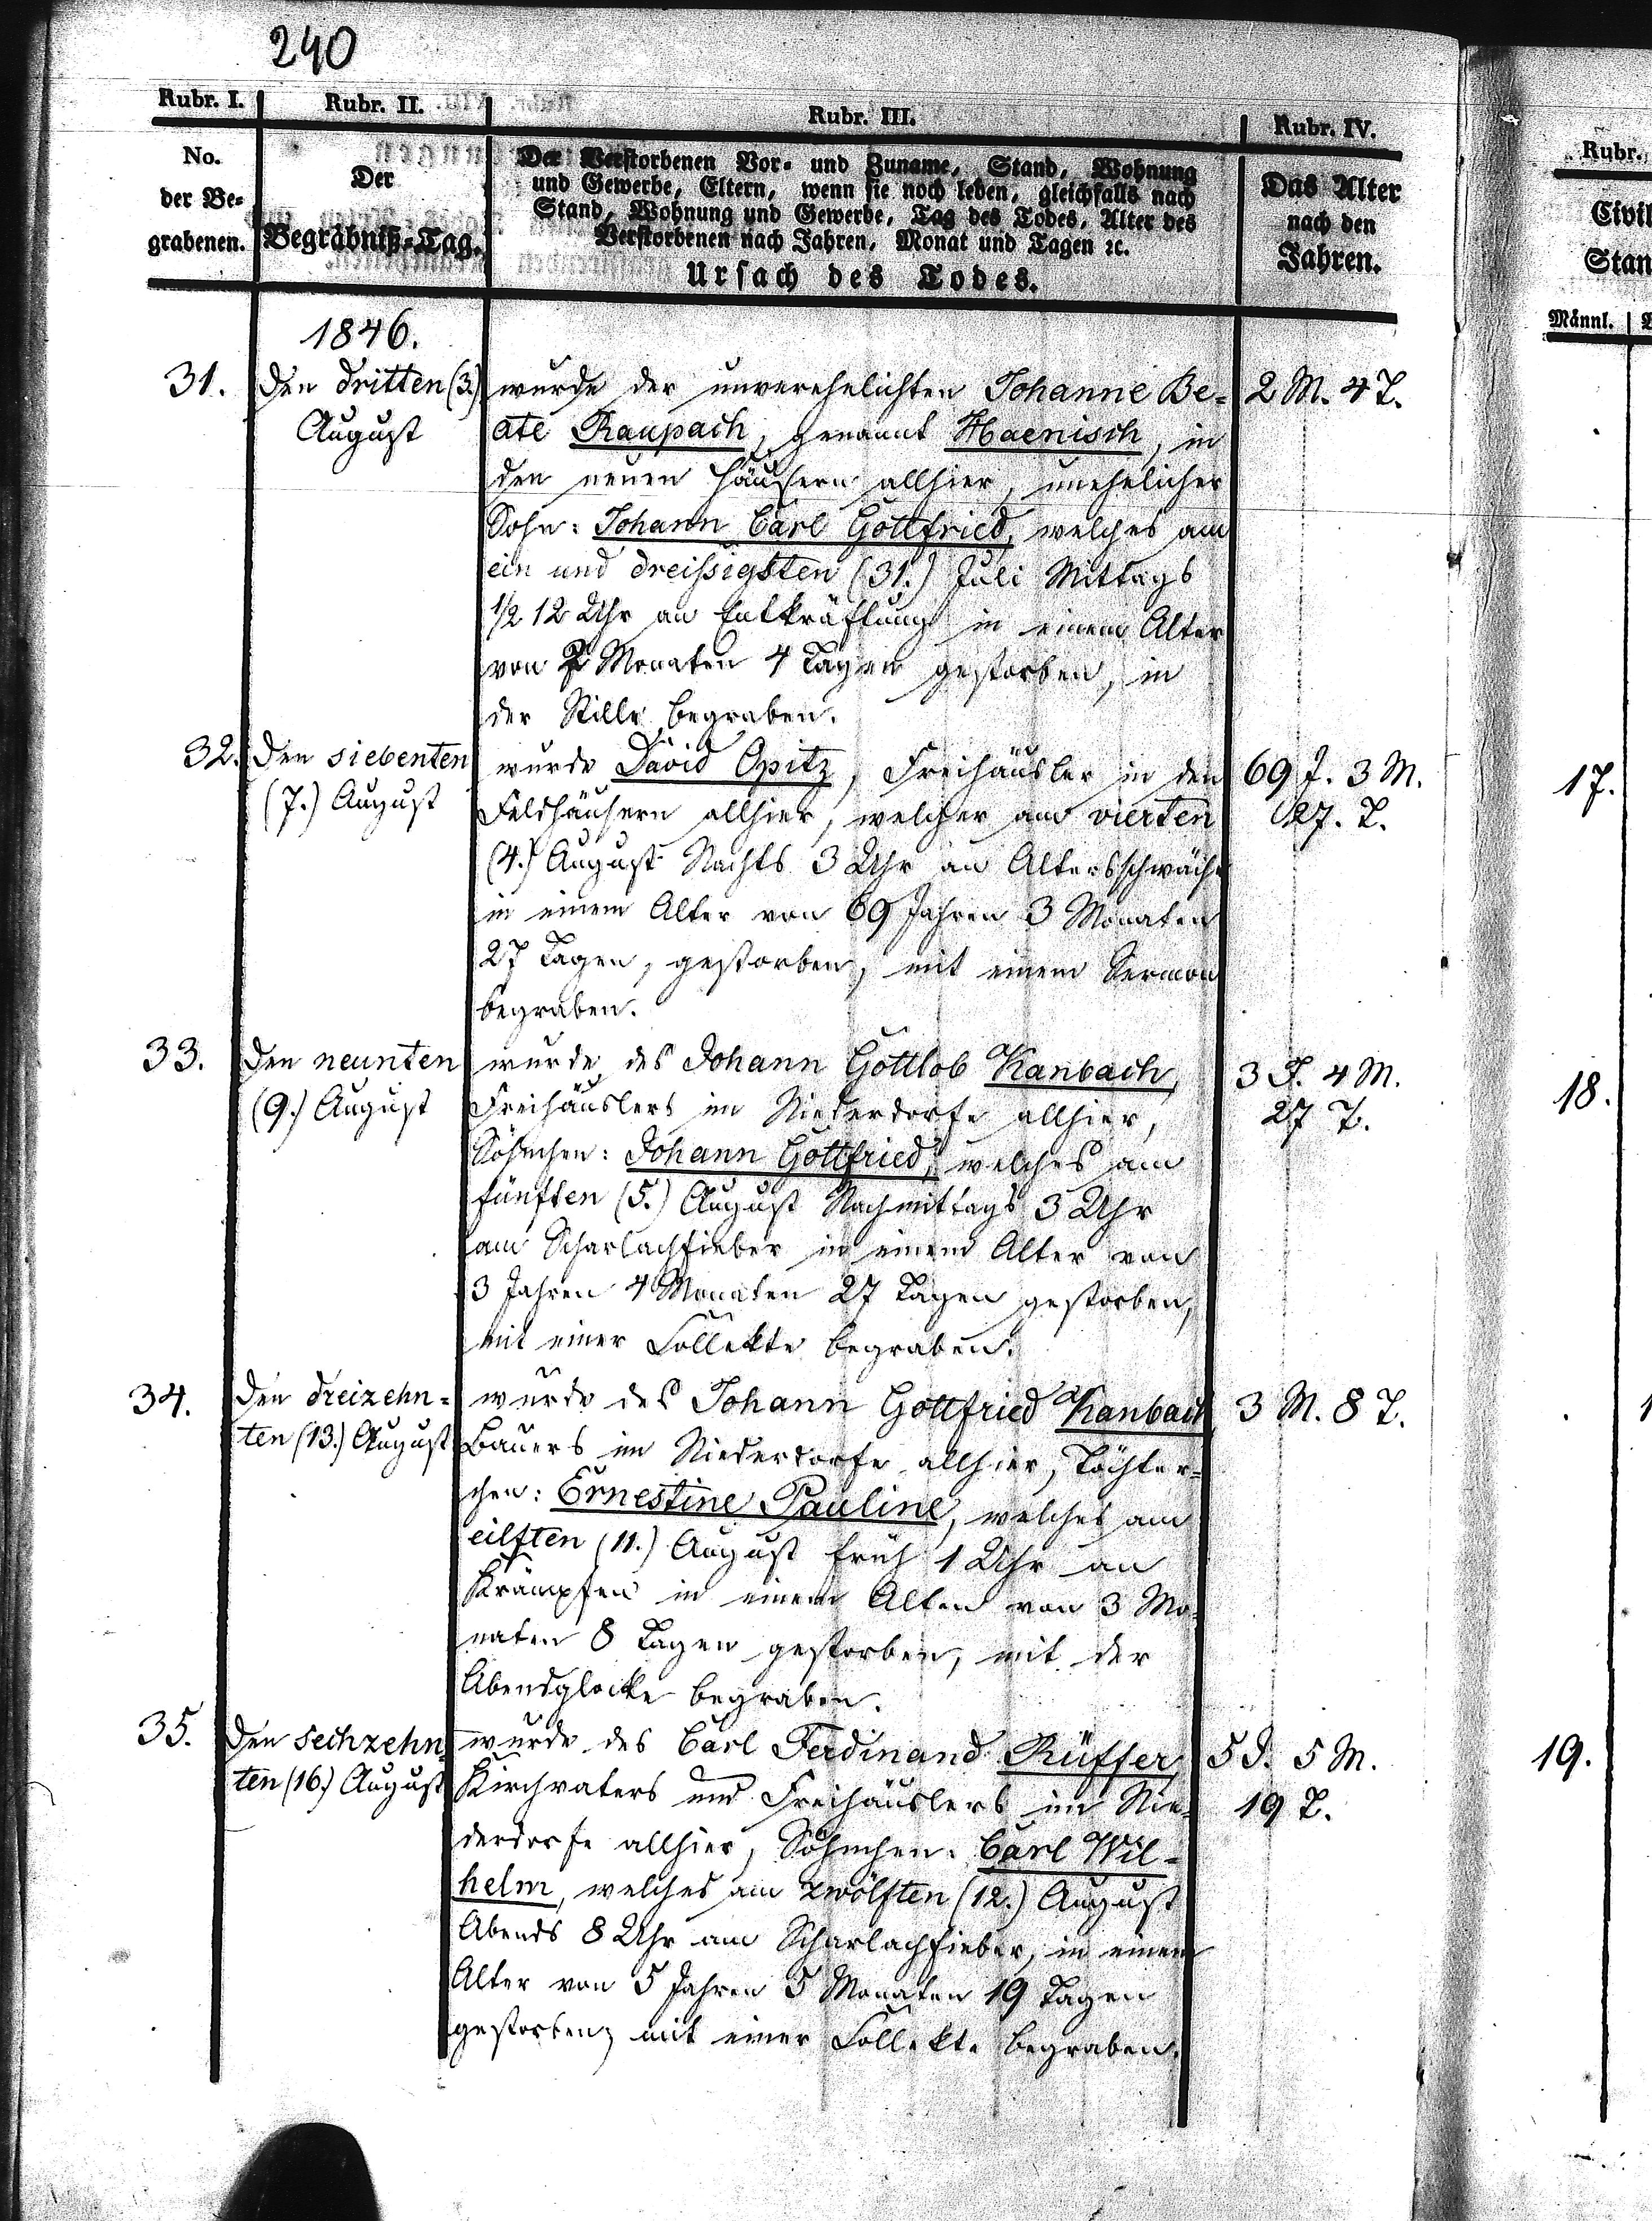 240
Rubr. I. Rubr. II. Rubr. III. Rubr. IV.
No.
der Be-
grabenen.
Der
Begräbniß-Tag.
Der Verstorbenen Vor- und Zuname, Stand, Wohnung
und Gewerbe, Eltern, wenn sie noch leben, gleichfalls nach
Stand, Wohnung und Gewerbe, Tag des Todes, Alter des
Verstorbenen nach Jahren, Monat und Tagen ꝛc.
Ursach des Todes.
Das Alter
nach den
Jahren.
1846.
31. Den dritten (3.) wurde der unverehelichten Johanne Be- 2 M. 4 T.
August ate Raupach, genannt Haenisch, in
den neuen Häusern allhier, unehelicher
Sohn: Johann Carl Gottfried, welches am
ein und dreißigsten (31.) Juli Mittags
1/2 12 Uhr an Entkräftung in einem Alter
von 2 Monaten 4 Tagen gestorben, in
der Stille begraben.
32. Den siebenten wurde David Opitz, Freihäusler in den 69 J. 3 M.
(7.) August Feldhäusern allhier, welcher am vierten 27. T.
(4.) August Nachts 3 Uhr an Altersschwäche
in einem Alter von 69 Jahren 3 Monaten
27 Tagen, gestorben, mit einem Sermon
begraben.
33. Den neunten wurde des Johann Gottlob Kanbach, 3 J. 4 M.
(9.) August Freihäuslers im Niederdorfe allhier, 27 T.
Söhnchen: Johann Gottfried, welches am
fünften (5.) August Nachmittags 3 Uhr
am Scharlachfieber in einem Alter von
3 Jahren 4 Monaten 27 Tagen gestorben,
mit einer Collekte begraben.
34. Den dreizehn- wurde des Johann Gottfried Kanbach 3 M. 8 T.
ten (13.) August Bauers im Niederdorfe allhier, Töchter-
chen: Ernestine Pauline, welches am
eilften (11.) August früh 1 Uhr an
Krämpfen in einem Alter von 3 Mo-
naten 8 Tagen gestorben, mit der
Abendglocke begraben.
35. Den sechzehn- wurde des Carl Ferdinand Rüffer, 5 J. 5 M.
ten (16.) August Kirchvaters und Freihäuslers im Nie- 19 T.
derdorfe allhier, Söhnchen: Carl Wil-
helm, welches am zwölften (12.) August
Abends 8 Uhr am Scharlachfieber, in einem
Alter von 5 Jahren 5 Monaten 19 Tagen
gestorben, mit einer Collekte begraben.
Rubr.
Civil
Stan
Männl.
17.
18.
19.